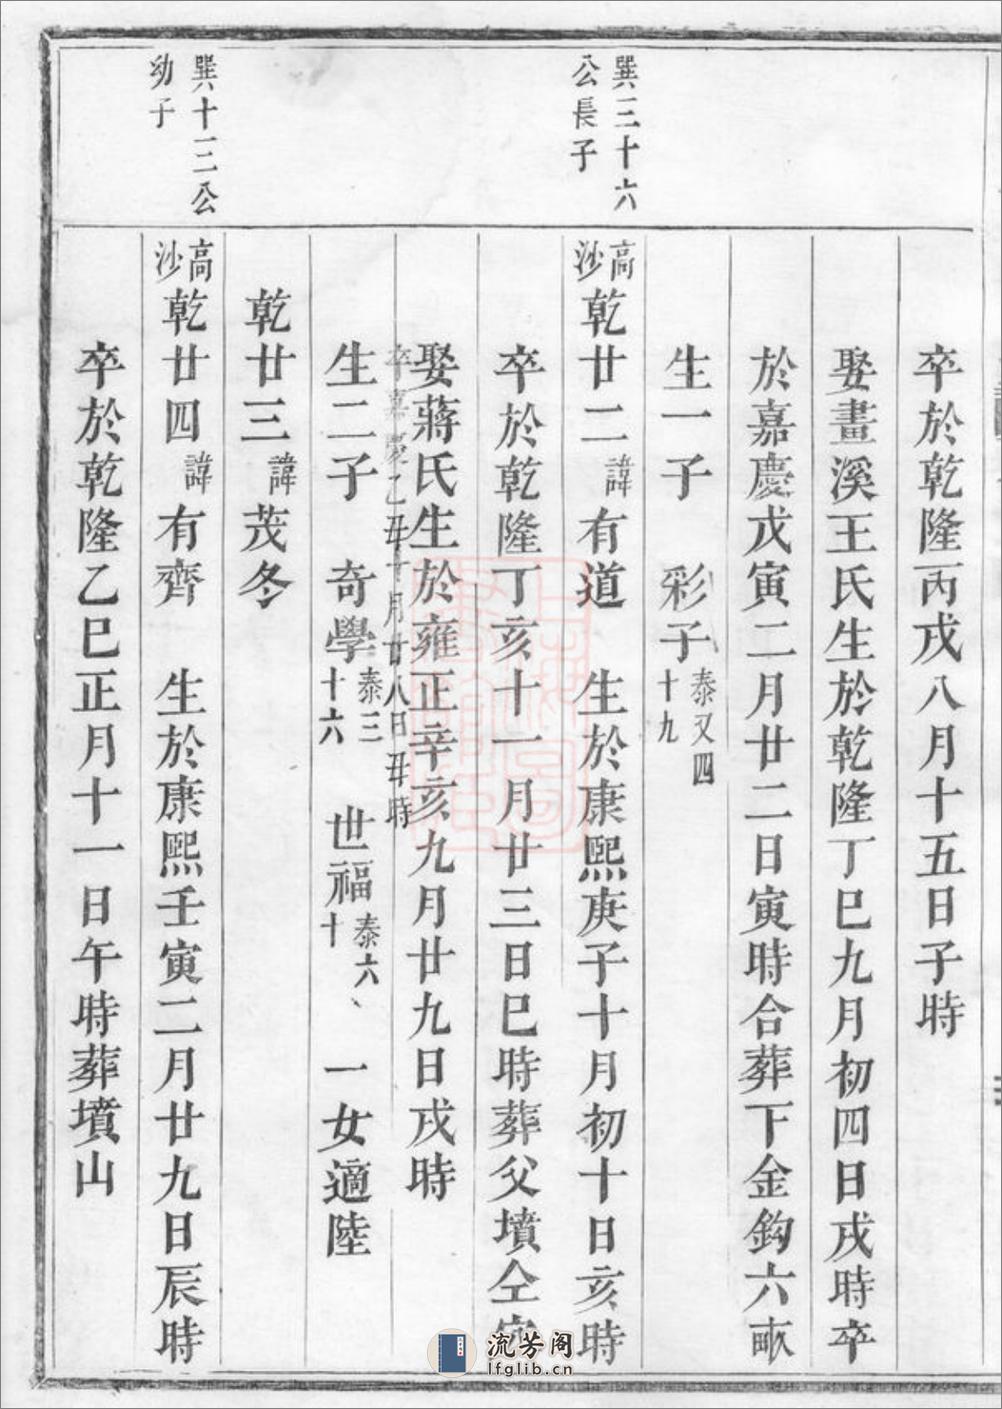 卒於乾隆丙戌八月十五日子時
娶畫溪王氏生於乾隆丁巳九月初四日戌時卒
於嘉慶戊寅二月廿二日寅時合葬下金鈎六畝
生一子 彩子泰又四十九
巽三十六
公長子
高沙乾廿二諱有道 生於康熙庚子十月初十日亥時
卒於乾隆丁亥十一月廿三日巳時葬父墳仝
娶蔣氏生於雍正辛亥九月廿九日戌時
卒嘉慶乙丑十月廿八日丑時
生二子 奇學泰三十六 世福泰六十、 一女適陸
乾廿三諱茂冬
巽十二公
幼子
高沙乾廿四諱有齊 生於康熙壬寅二月廿九日辰時
卒於乾隆乙巳正月十一日午時葬墳山
流芳阁
lfglib.cn